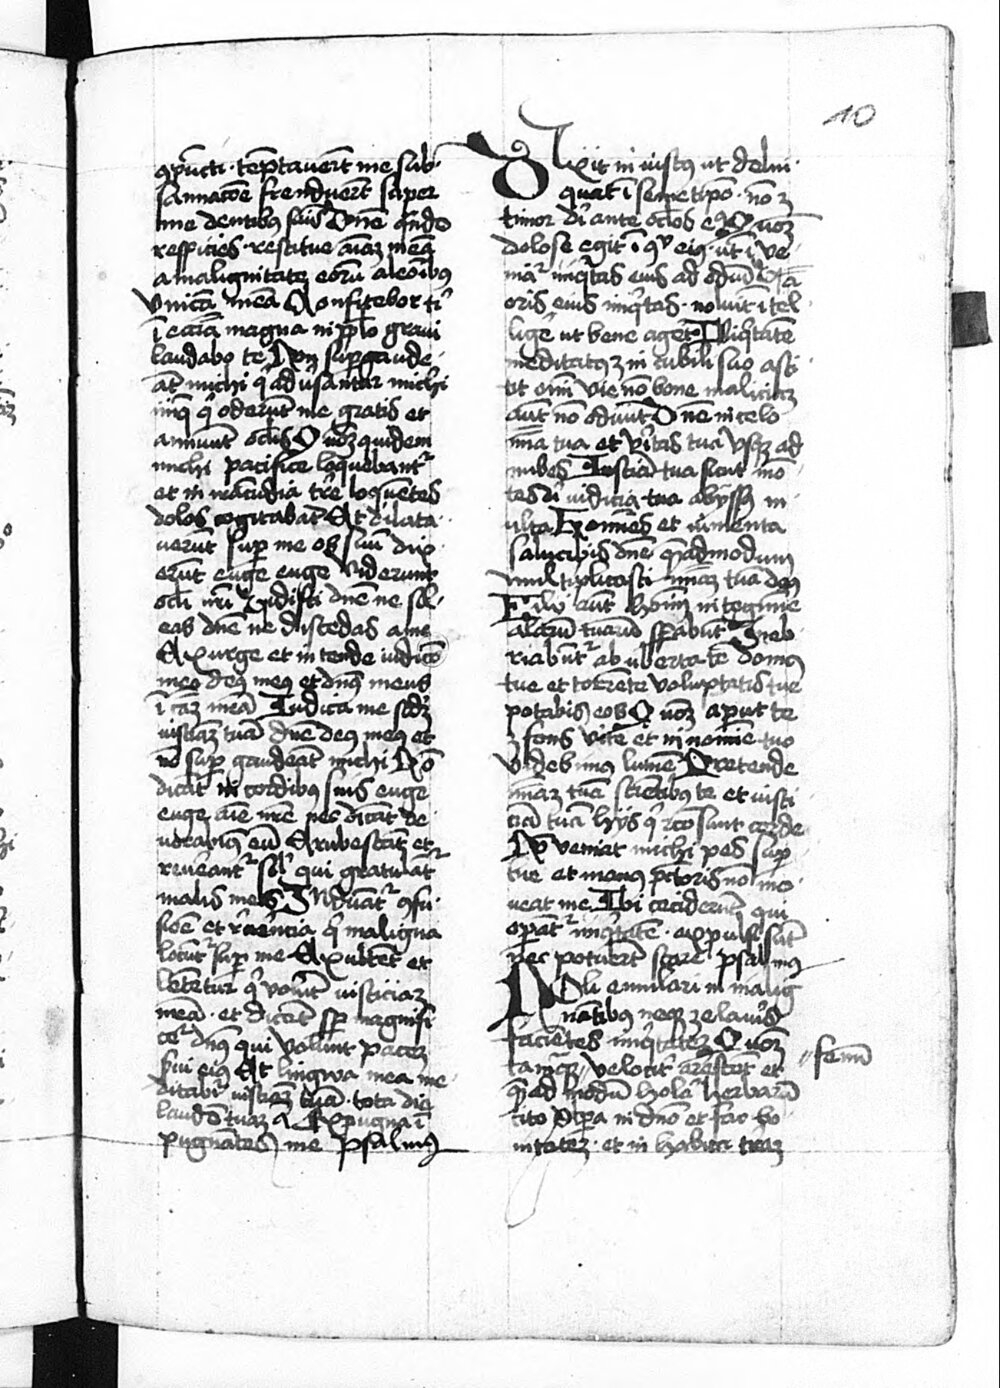 10
9pūcti · tēptavert me sub·
sannacōe frenduert super
me dentibꝫ suis Dn̄e qn̄do
respicies · restitue aīaꝫ meā
a malignitate eorū a leoībꝫ
vnicā meā Confitebor ti
ī eccīa magna in pplo gravi
laudabo te Non supgaude·
āt michi q̄ adūsantur michi
iniq̄ q̄ oderūt me gratis et
annuūt oclis Quoꝫ quidem
michi pacifice loquebantr
et in iracūdia tre loquētes
dolos cogitabāt Et dilata·
uerūt sup me os suū dix·
erūt euge euge viderunt
ocli nr̄i Vidisti dn̄e ne sil·
eas dn̄e ne discedas a me
Exurge et intende iudico
meo deꝰ meꝰ et dnꝰ meus
ī caꝫ meā Iudica me scdꝫ
iusticiaꝫ tuā dn̄e deꝰ meꝰ et
nō sup gaudeāt michi Nō
dicāt in cordibꝫ suis euge
euge aīe nr̄e nec dicāt de·
uorabimꝰ eū Erubescāt et
reueāntr sil qui gratulātr
malis meis Induātr 9fu·
sioē et reuēncia q̄ maligna
locūtr sup me Exultēt et
letētur q̄ volūt iusticiaꝫ
meā · et dicāt sp magnifi
cetr dnꝰ qui volunt pacem
sui eiꝰ Et lingwa mea me·
ditabir iusticiaꝫ tuā · tota die
laudē tuaꝫ Expugna ī
pugnātes me psalmus
Dixit in iustꝰ ut delin·
quat ī semetipo · nō ꝫ
timor di ante oclos eiꝰ Quoꝫ
dolose egit ī 9spū eiꝰ · ut ī ve·
niar iniqitas eius ad odiū Vba
oris eius iniqitas · noluit ītel·
lige ut bene aget Iniqitatē
meditatꝰ ꝫ in cubili suo asti
tit omi vie nō bone maliciaꝫ
aut nō odiuit Dne in celo
mīa tua et veritas tua vsqꝫ ad
nubes Iusticia tua sicut mō·
tes di iudicia tua abyssꝰ m·
ulta Homines et iumenta
saluabis dn̄e q̄admodum
multiplicasti mīaꝫ tuā deꝰ
Filij aut hoīm in tegmine
alarū tuarū spabūt Ineb·
riabūtr ab ubertate domꝰ
tue et torrēte voluptatis tue
potabis eos Quoꝫ aput te
ꝫ fons vite et in nomīe tuo
videbimꝰ lumē Pretende
mīaꝫ tuā sciētibꝫ te et iusti
ciā tuā hijs q̄ rcto sunt corde
Nō veniat michi pes sup·
bie et manꝰ pctoris nō mo·
ueat me Ibi cecideruꝫ qui
opātr iniqitatē · expulsi sūt
nec potuert stare psalmꝰ
Noli emulari in malig
nātibꝫ neqꝫ zelaūis
faciētes iniqitateꝫ Quoꝫ
tamqꝫ velocit arescēt et // fenū
q̄ad modū holā herbarū
cito Spera in dno et fac bo
nitateꝫ · et in habita traꝫ